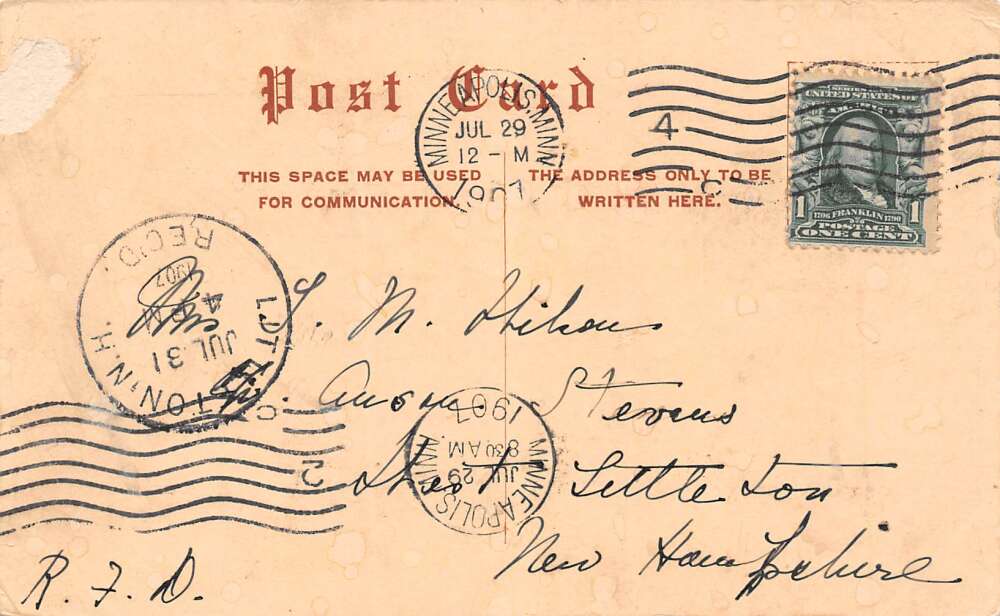 Post Card
THIS SPACE MAY BE USED
FOR COMMUNICATION.
THE ADDRESS ONLY TO BE
WRITTEN HERE.
MINNEAPOLIS, MINN.
JUL 29
12 - M
1907
4
C
SERIES 1902
UNITED STATES OF
AMERICA
1706 FRANKLIN 1790
1 POSTAGE 1
ONE CENT
LITTLETON, N.H.
JUL 31
4
1907
REC'D.
Mrs L. M. Wilson
Anson Stevens
Littleton
New Hampshire
R. F. D.
MINNEAPOLIS, MINN.
JUL 29
8 30 AM
1907
C
2